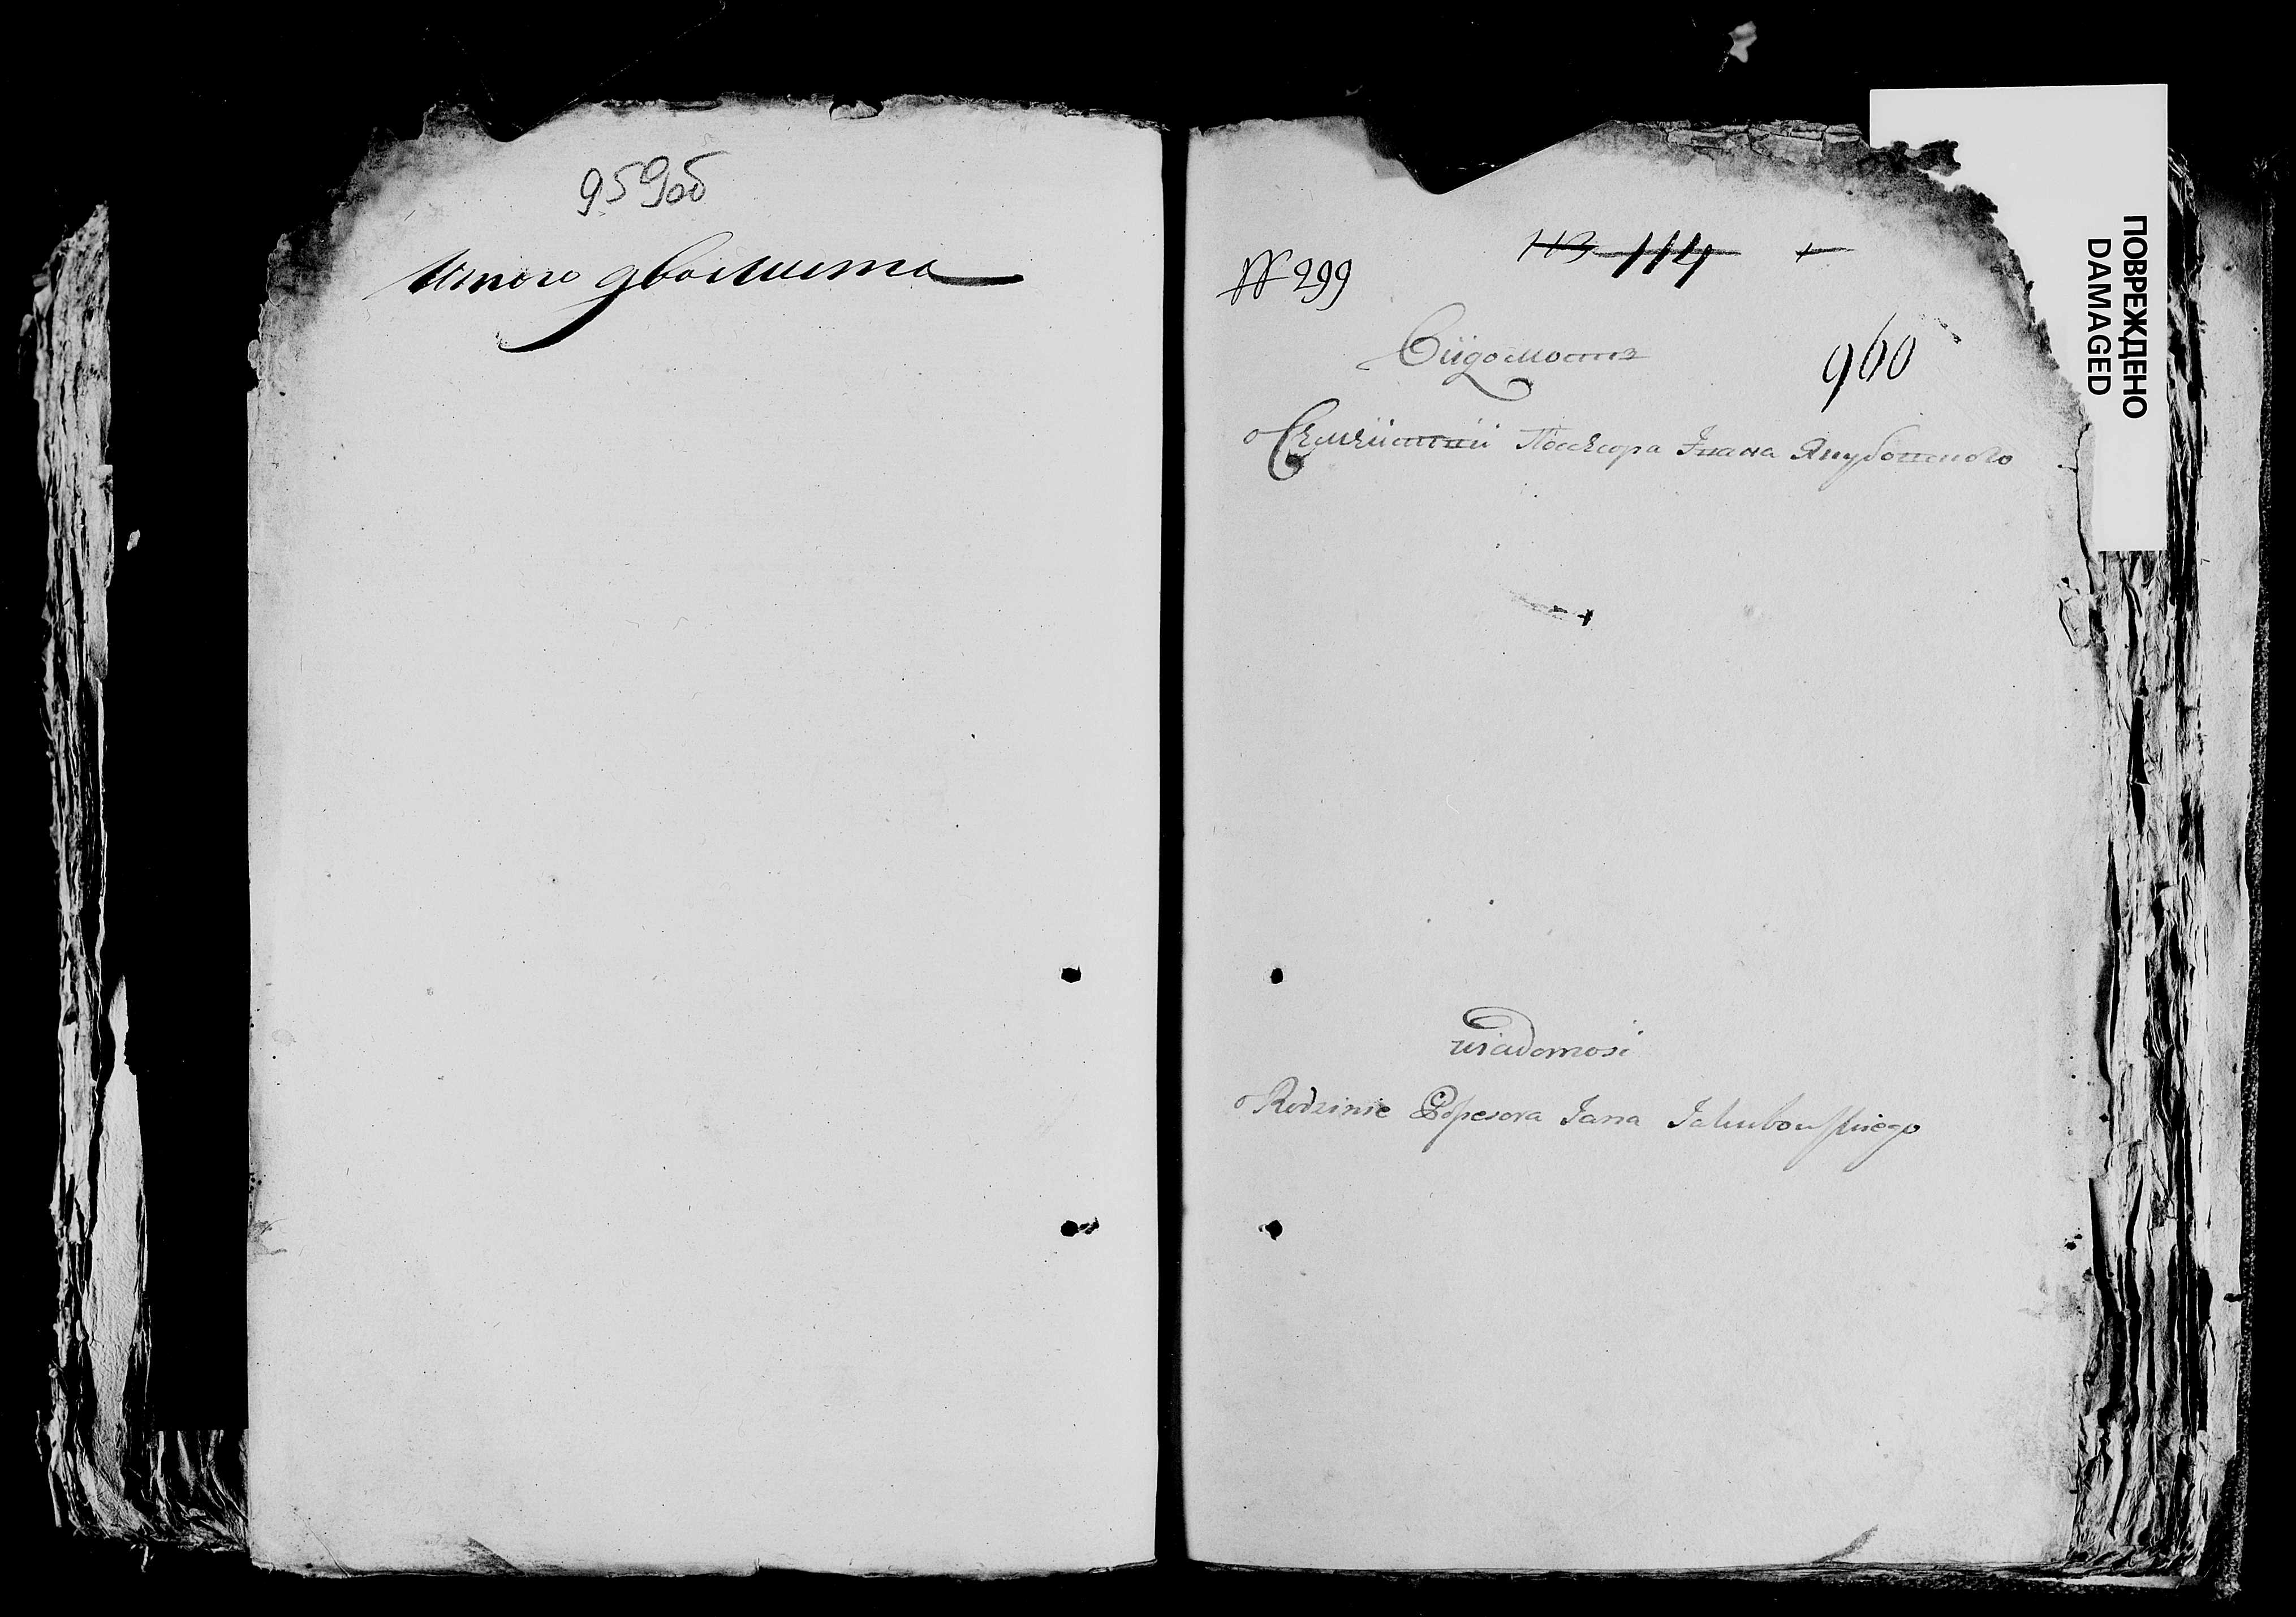 959об
Итого два листа
№ 299
113 114
Вѣдомость
960
о Семействѣ Поссесора Ивана Якубовского
wiadomosć
o Rodzinie Possesora Jana Jakubowskiego
ПОВРЕЖДЕНО
DAMAGED